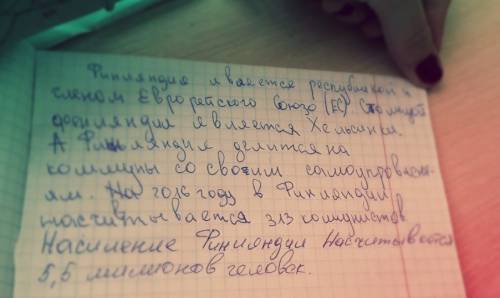 Финляндия явается республикой и
членом Евророейского Союзо (ЕС) Столицой
финляндия является Хельсинки.
А Финляндия делится на
коммуны со своим самоуправлени-
ям. На 2016 году в Финляндии
насчитывается 313 комунистов.
Насиление Финляндии Насчитывается
5,5 милионов человек.